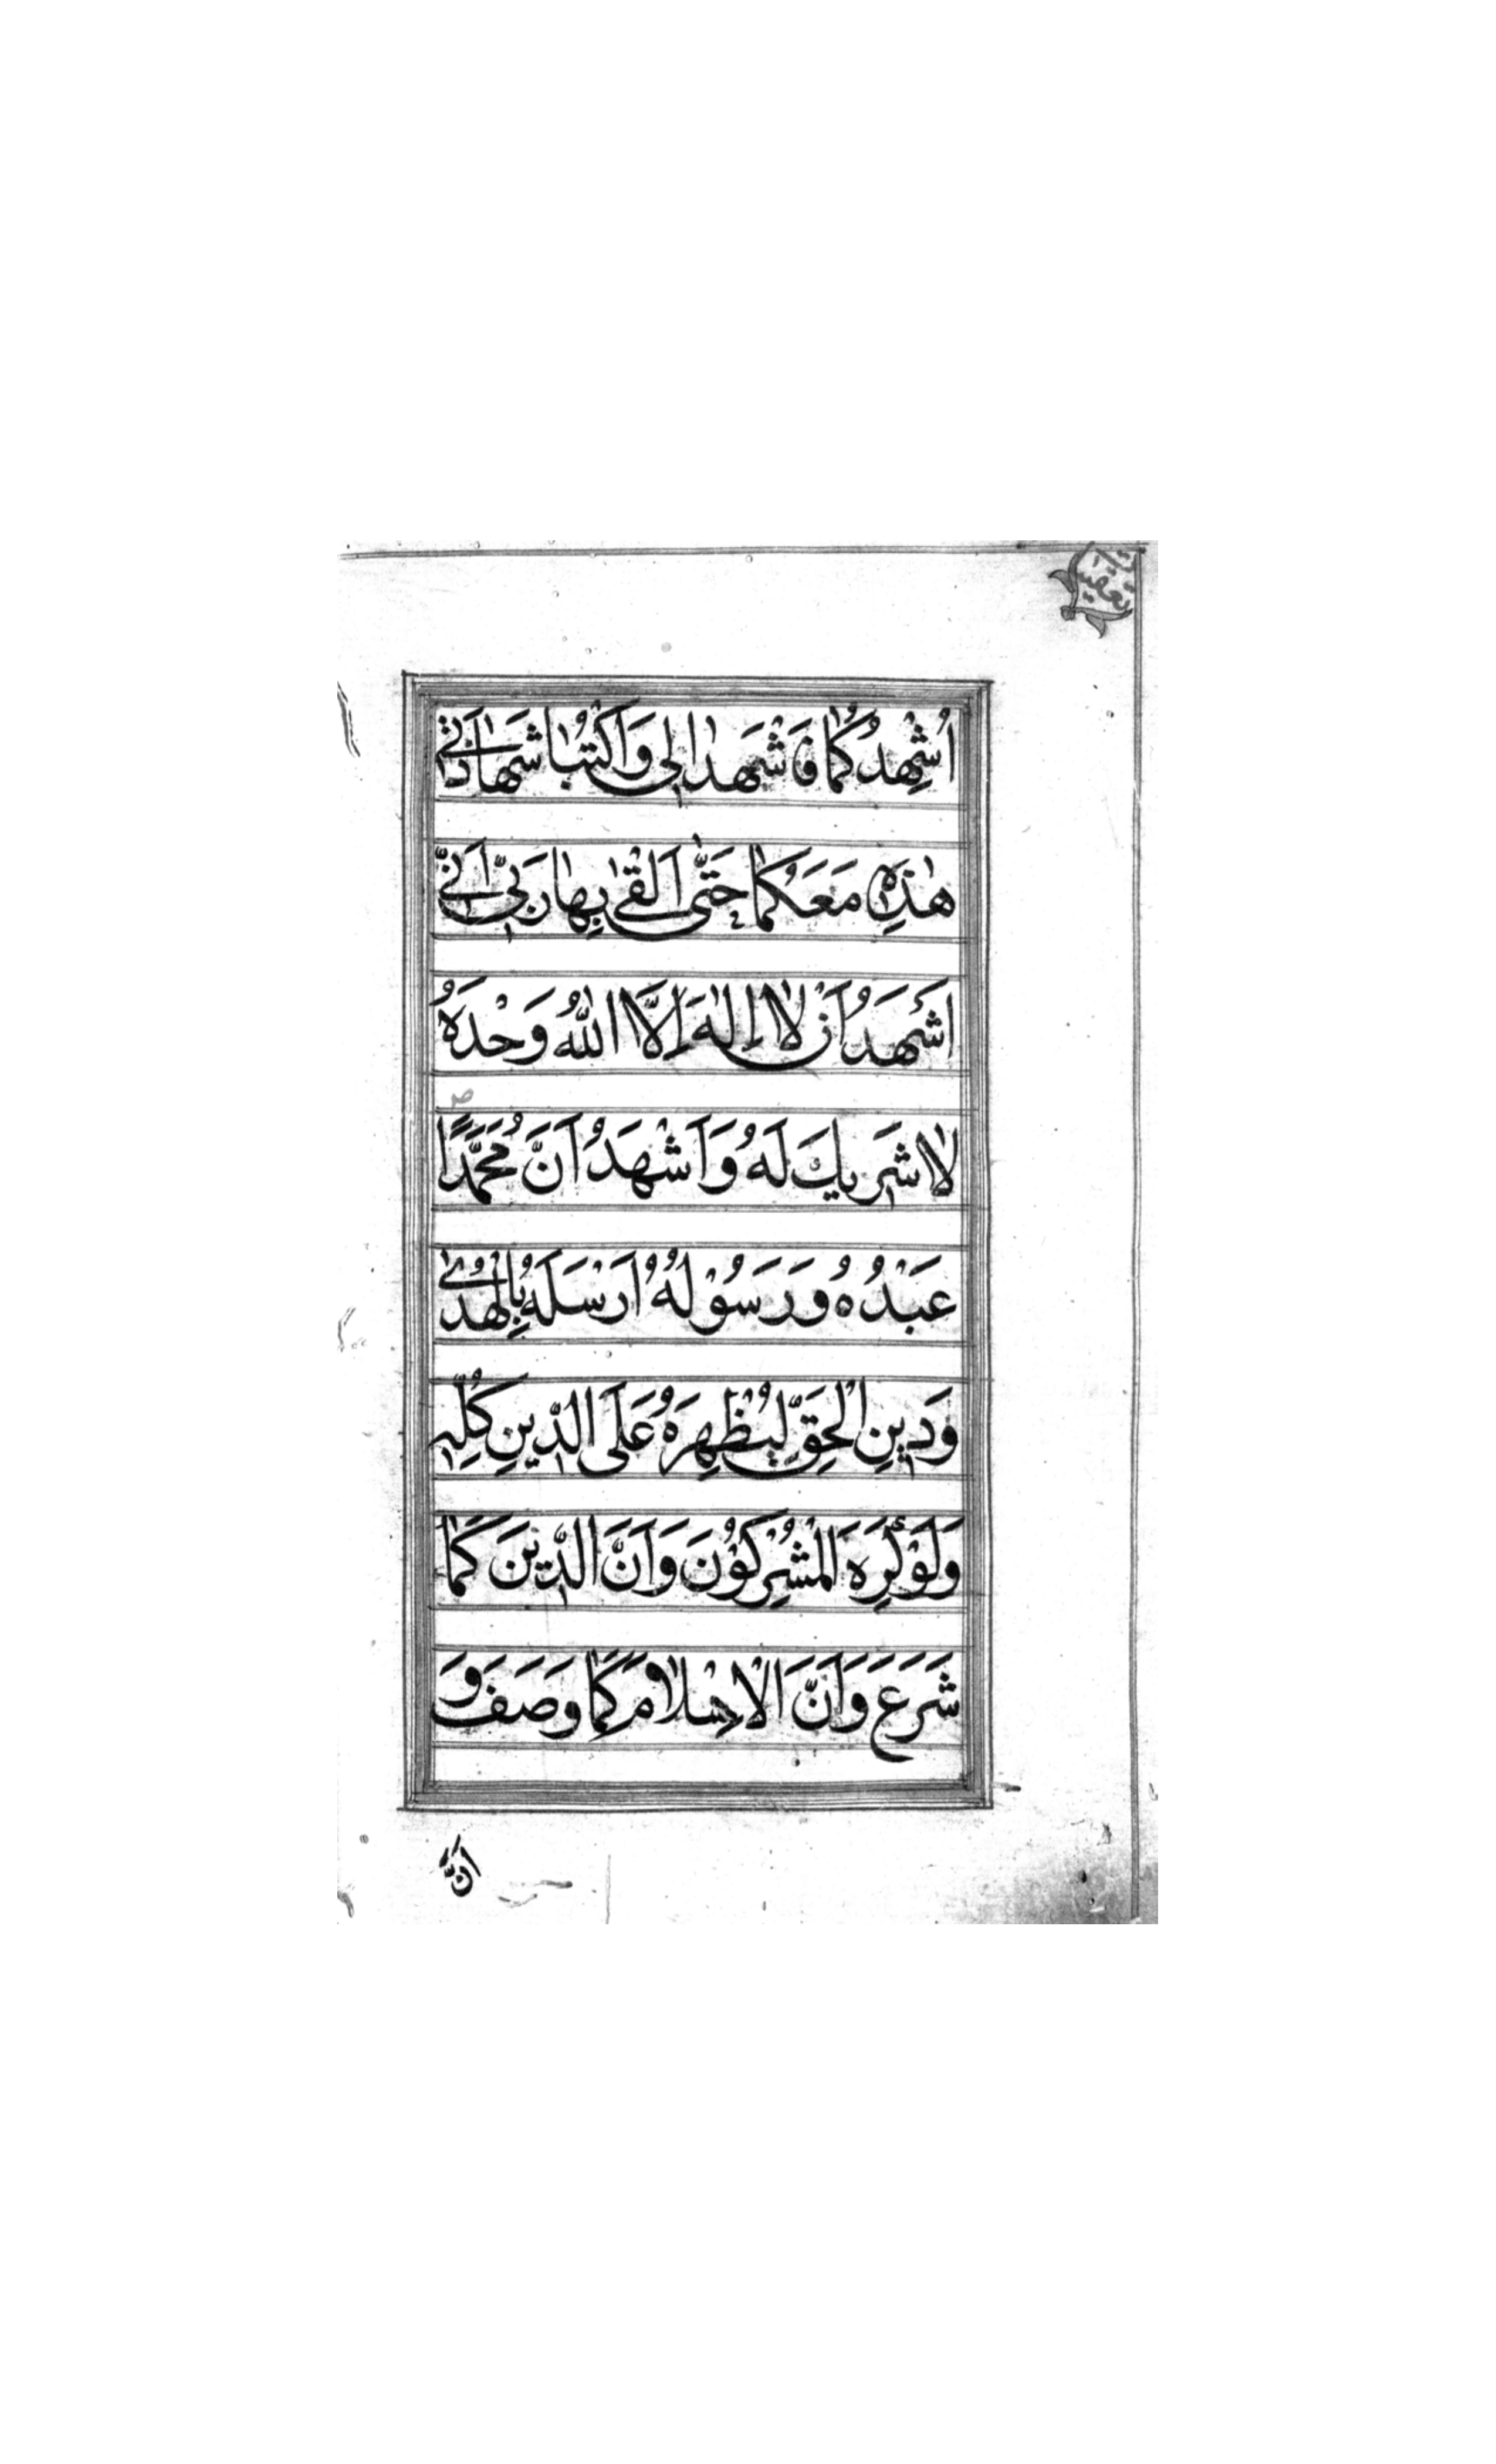 اُشْهِدُكُمٰا فَاشْهَدٰا لِي وَاَكْتُبٰا شَهٰادَتٖي
هٰذِهِ مَعَكُمٰا حَتّٰى اَلْقٰى بِهٰا رَبّٖي اَنّٖي
اَشْهَدُ اَنْ لٰا اِلٰهَ اِلَّا اللّٰهُ وَحْدَهُ
لٰا شَرٖيكَ لَهُ وَاَشْهَدُ اَنَّ مُحَمَّدًا
عَبْدُهُ وَرَسُوْلُهُ اَرْسَلَهُ بِالْهُدٰى
وَدٖينِ الْحَقِّ لِيُظْهِرَهُ عَلَى الدّٖينِ كُلِّهٖ
وَلَوْ كَرِهَ الْمُشْرِكُوْنَ وَاَنَّ الدّٖينَ كَمٰا
شَرَعَ وَاَنَّ الْاِسْلٰامَ كَمٰا وَصَفَ وَ
اَنَّ